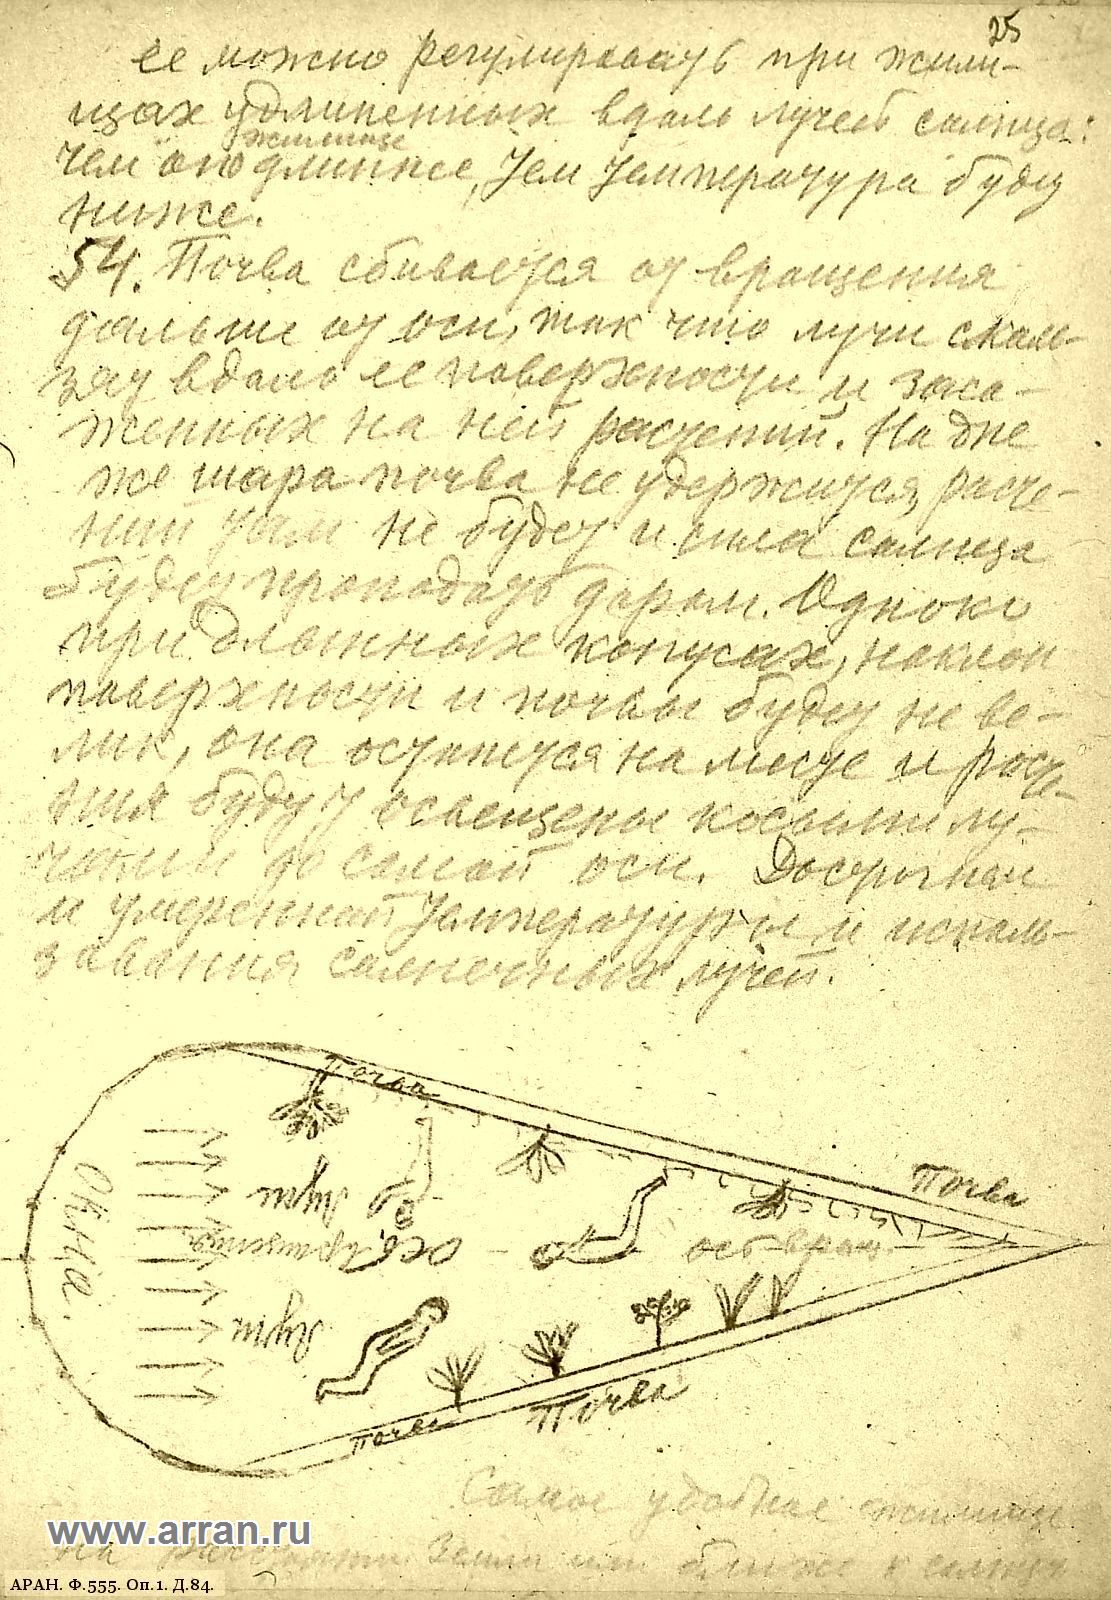 25
ее можно регулировать при жили-
щах удлиненных вдоль лучей солнца:
жилище
чем оно длиннее, тем температура будет
ниже.
54. Почва сбивается от вращения
дальше от оси, так что лучи сколь-
зят вдоль ее поверхности и заса-
женных на ней растений. На дне
же шара почва не удержится, расте-
ний там не будет и сила солнца
будет пропадать даром. Однако
при длинных конусах, наклон
поверхности и почвы будет не ве-
лик, она останется на месте и расте-
ния будут освещены косыми лу-
чами до самой оси. Достигнем
и умеренной температуры и исполь-
зования солнечных лучей.
Почва
Почва
Лучи
Окна.
Ось вращения
ось вращ.
Лучи
Почва
Почва
Самое удобное жилище
на расстоянии Земли или ближе к солнцу
www.arran.ru
АРАН. Ф.555. Оп.1. Д.84.